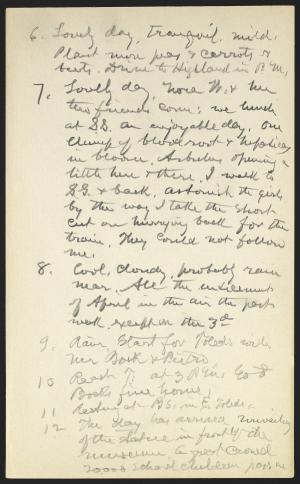 6. Lovely day, tranquil, mild.
Plant more peas & carrots &
beets. Drive to Highland in P.M.
7. Lovely day, Nora W. & her
two friends come: we lunch
at S.S. an enjoyable day. One
clump of bloodroot & hepaticas
in bloom. Arbutus opening a
little here & there. I walk to
S.S. & back, astonish the girls
by the way I take the short
cut on hurrying back for the
train. They could not follow
me.
8. Cool, cloudy, probably rain
near. All the excitement
of April in the air the past
week except on the 3rd
9. Rain, Start for Toledo with
Mr Bock &
10 Reach T. at 3 P.M. Go to
Bocks fine home.
11 Resting at B's. in Toledo.
12 The day has arrived. Unveiling
of the statue in front of the
museum. A great crowd
20000 school children pass me